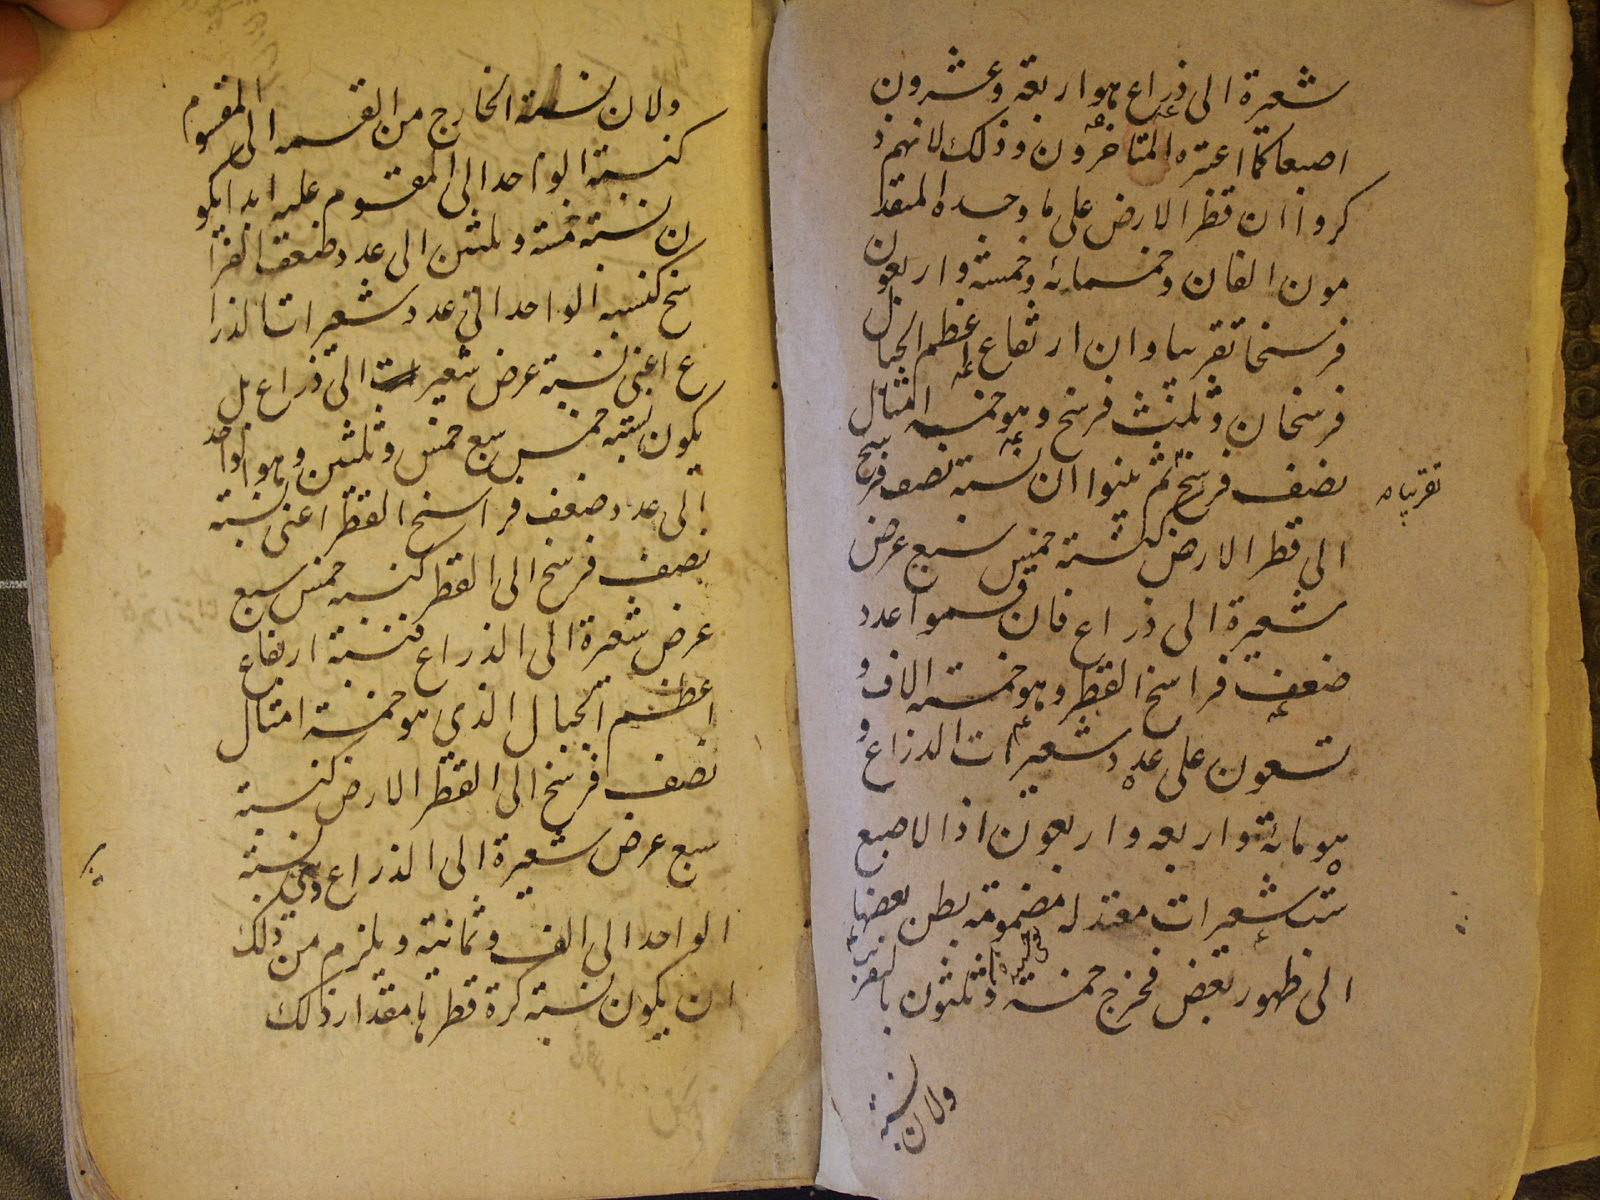 شعيرة الى ذراع هو اربعة وعشرون
اصبعا كما اعتبره المتاخرون وذلك لانهم ذ
كروا ان قطر الارض على ما وجده المتقد
مون الفان وخمسمائة وخمسة واربعون
فرسخا تقريبا وان ارتفاع اعظم الجبال
فرسخان وثلث فرسخ وهو خمسة امثال
نصف فرسخ ثم بينوا ان نسبة نصف فرسخ
تقريبا
الى قطر الارض كنسبة خمس سبع عرض
شعيرة الى ذراع فان قسموا عدد
ضعف فراسخ القطر وهو خمسة الاف و
تسعون على عدد شعيرات الذراع و
هو مائة واربعة واربعون اذا الاصبع
ست شعيرات معتدلة مضمومة بطن بعضها
الى ظهور بعض فخرج خمسة وثلثون بالتقريب
ولان نسبة
ولان نسبة الخارج من القسمة الى المقسوم
كنسبة الواحد الى المقسوم عليه ابدا يكو
ن نسبة خمسة وثلثين الى عدد ضعف الفرا
سخ كنسبة الواحد الى عدد شعيرات الذرا
ع اعنى نسبة عرض شعير الى ذراع بل
يكون نسبة خمس سبع خمس وثلثين وهو الواحد
الى عدد ضعف فراسخ القطر اعنى نسبة
نصف فرسخ الى القطر كنسبة خمس سبع
عرض شعيرة الى الذراع فنسبة ارتفاع
اعظم الجبال الذي هو خمسة امثال
نصف فرسخ الى القطر الارض كنسبة
سبع عرض شعيرة الى الذراع وهى نسبة
الواحد الى الف وثمانية ويلزم من ذلك
ان يكون نسبة كرة قطرها مقدار ذلك